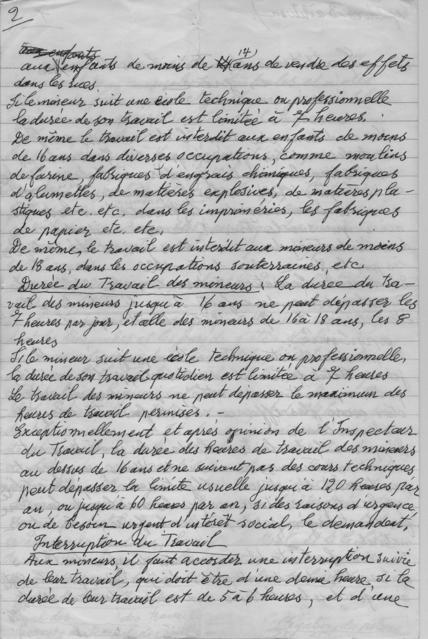 2
aux enfants
aux enfants de moins de 14 ans de vendre des effets
dans les rues.
Si le mineur suit une école technique ou professionnelle
la durée de son travail est limitée à 7 heures.
De même le travail est interdit aux enfants de moins
de 16 ans dans diverses occupations, comme moulins
de farine, fabriques d'engrais chimiques, fabriques
d'allumettes, de matières explosives, de matières pla-
stiques etc. etc. dans les impriméries, les fabriques
de papier etc. etc.
De même, le travail est interdit aux mineurs de moins
de 18 ans, dans les occupations souterraines, etc.
Durée du Travail des mineurs: la durée du tra-
vail des mineurs jusqu'à 16 ans ne peut dépasser les
7 heures par jour, et celle des mineurs de 16 à 18 ans, les 8
heures
Si le mineur suit une école technique ou professionnelle,
la durée de son travail quotidien est limitée à 7 heures
Le travail des mineurs ne peut dépasser le maximum des
heures de travail permises. -
Exceptionnellement et après opinion de l'Inspecteur
du Travail, la durée des heures de travail des mineurs
au dessus de 16 ans et ne suivent pas des cours techniques
peut dépasser la limite usuelle jusqu'à 120 heures par
an, ou jusqu'à 60 heures par an, si des raisons d'urgence
ou de besoin urgent d'intérêt social, le demandent,
Interruption du Travail
Aux mineurs, il faut accorder une interruption suivie
de leur travail, qui doit être d'une demie heure si la
durée de leur travail est de 5 à 6 heures, et d'une